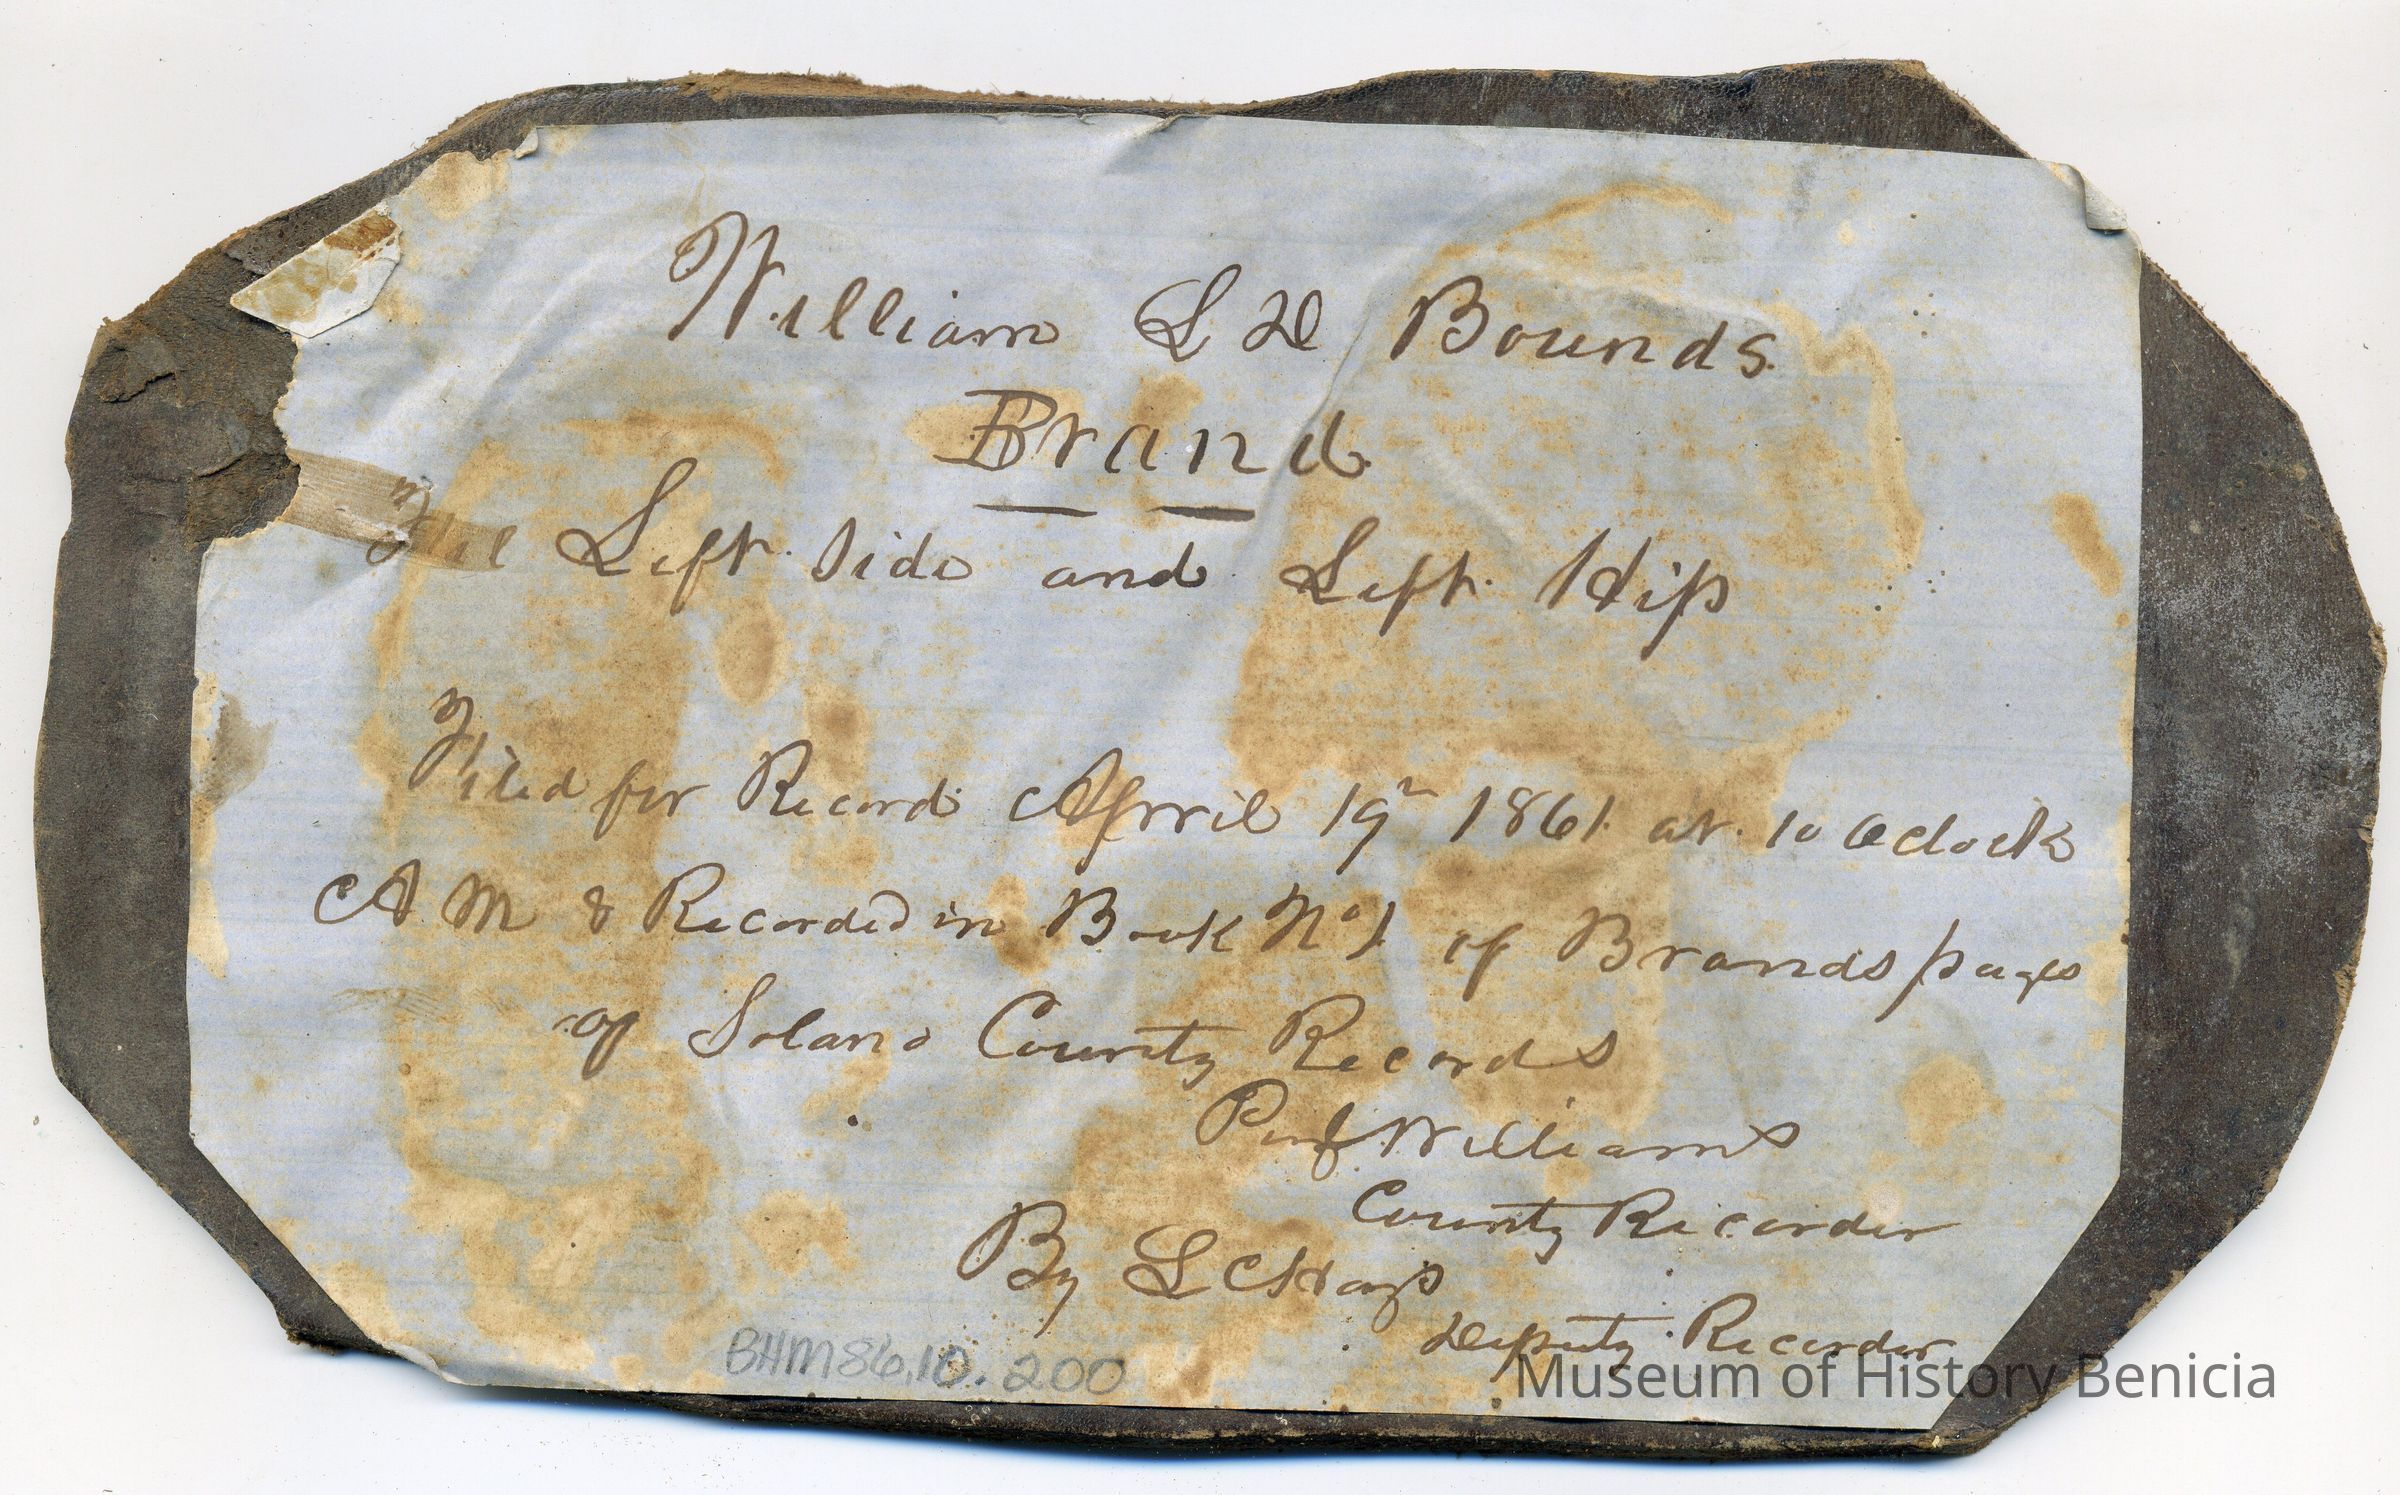 William L D Bounds.
Brand
The Left Side and Left Hip
Filed for Record April 19th 1861 at 10 Oclock
A. M & Recorded in Book No 1 of Brands pages
of Solano County Records
Williams
County Recorder
By L C
Deputy Recorder
BHM86.10.200
Museum of History Benicia